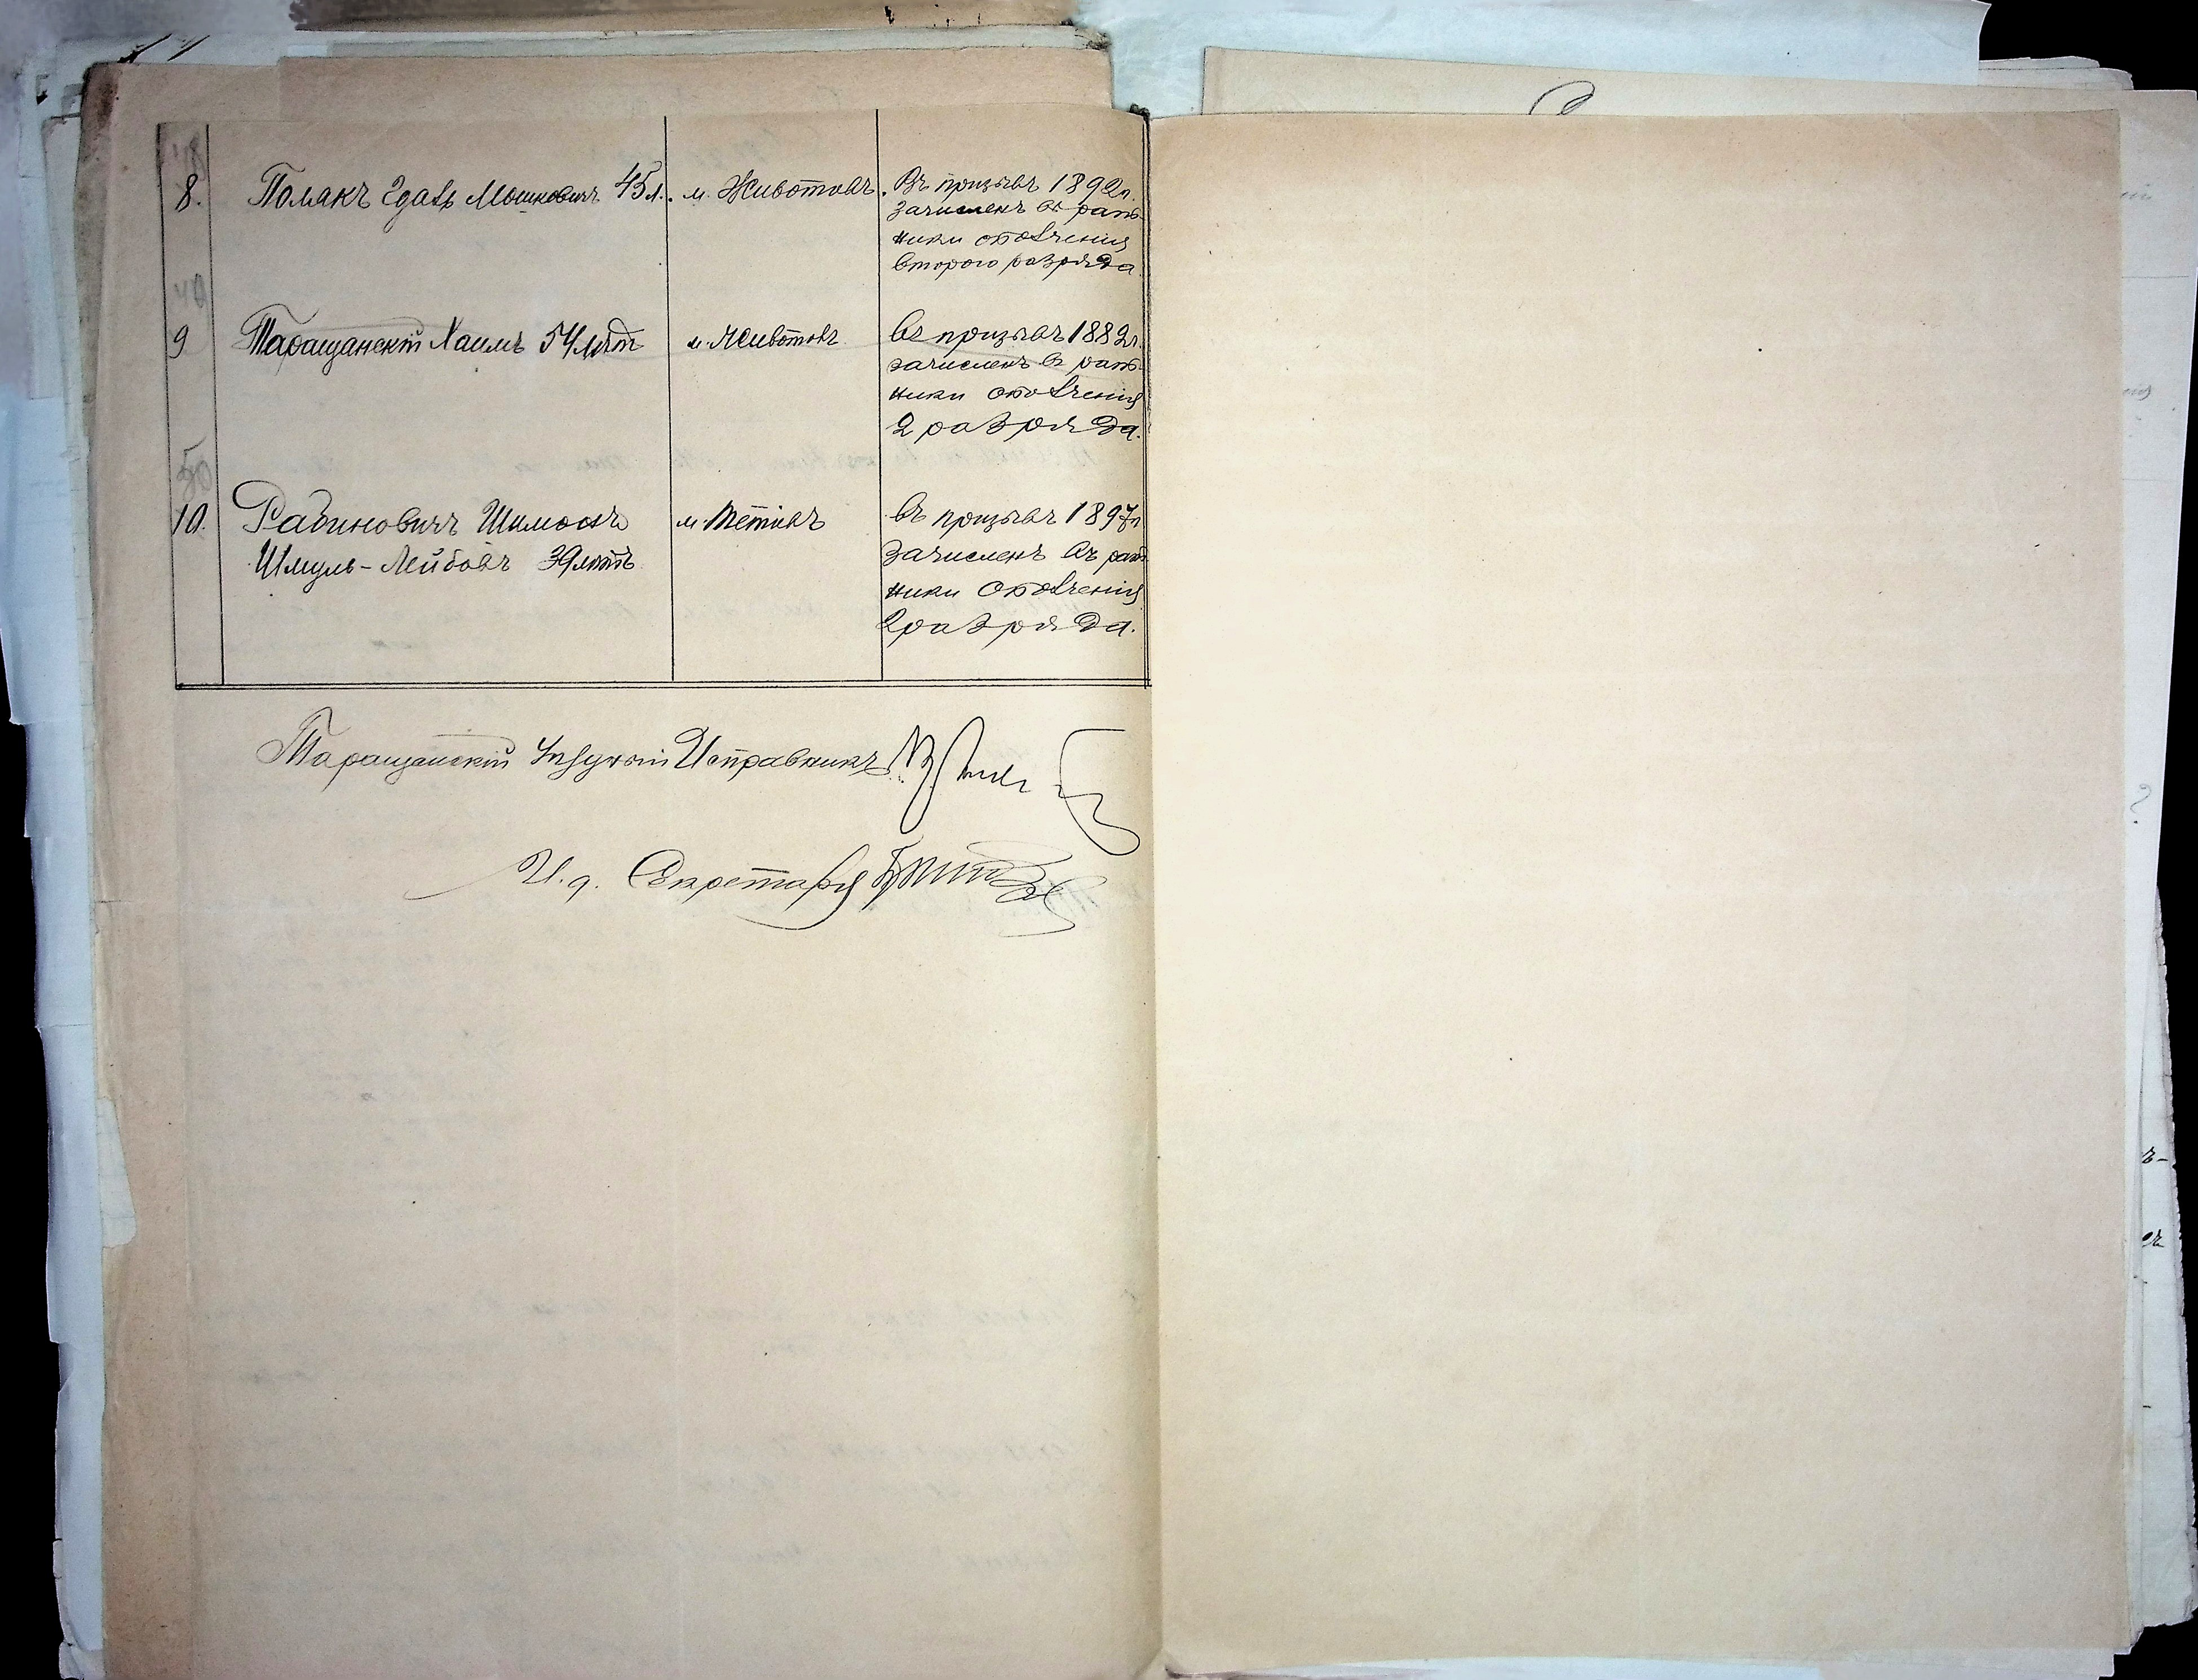 48
8. Полакъ Эдаль Мошковичъ 45 л. м. Животовъ. Въ призывъ 1892 г.
зачисленъ въ рат-
ники ополченія
второго разряда.
49
9 Таращанскій Хаимъ 54 лѣтъ м. Животовъ Въ призывъ 1882 г.
зачисленъ въ рат-
ники ополченія
2 разряда.
50
10. Рабиновичъ Шимонъ м. Тетіевъ Въ призывъ 1897 г
Шмуль-Лейбовъ 39 лѣтъ зачисленъ въ рат-
ники ополченія
2 разряда.
Таращанскій Уѣздный Исправникъ
И. д. Секретаря